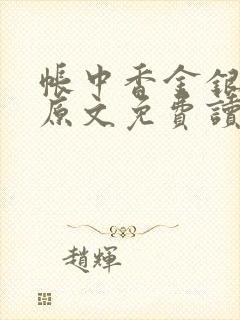 帳中香金銀
原文免費讀
趙輝